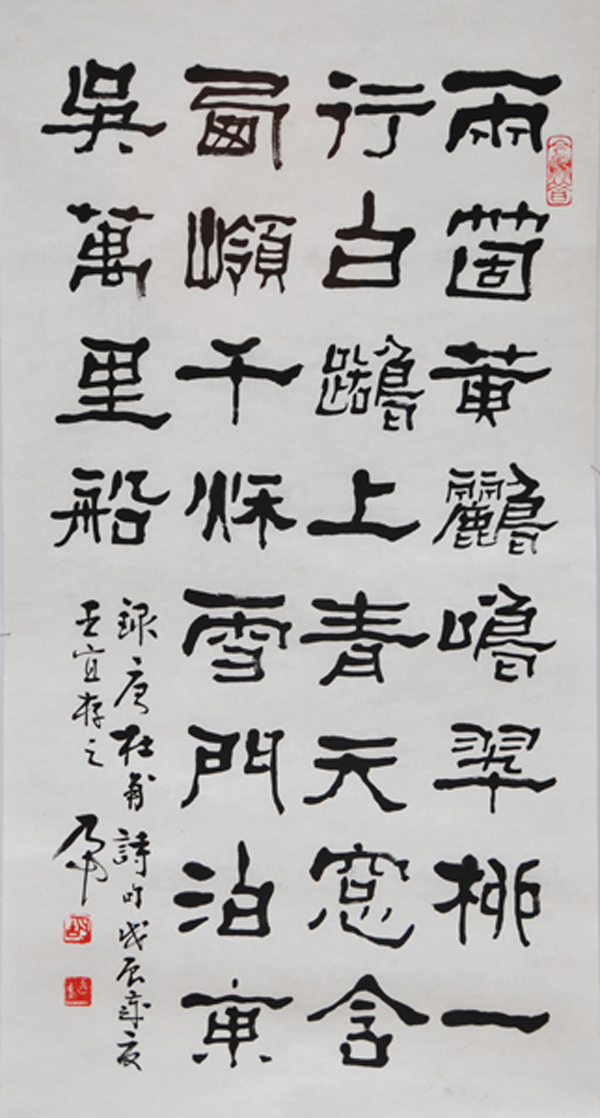 兩箇黃鸝鳴翠柳一
行白鷺上青天窓含
西嶺千秌雪門泊東
吳萬里船
錄唐杜甫詩時戊辰歲夏
宜存之